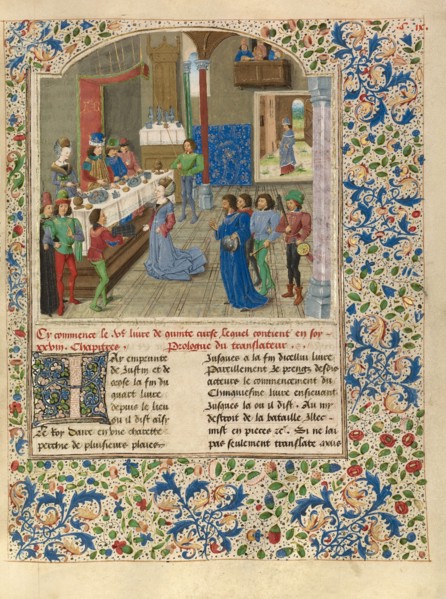 Cy commence le .v.e liure de quinte curse. lequel contient en soy
xxviij. Chapitres. Prologue du translateur.
Iay emprunte
de Justin et de
orose la fin du
quart liure
depuis le lieu
ou il dist ainsi
Le Roy Daire en vne charette
percine de plusieurs plaies
Jusques a la fin dicellui liure
Pareillement Je prengs desdis
acteurs le commencement du
Chinquiesme liure ensieuant
Jusques la ou il dist. Au my
destroit de la bataille. Illec
mist en pieces &c. Si ne lai
pas seulement translate mais